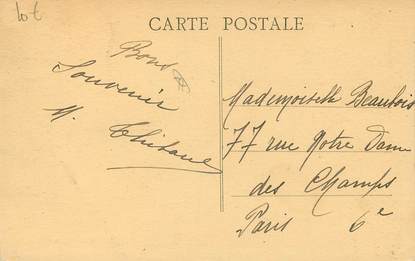 10€
CARTE POSTALE
Bons
Souvenir
M. Thibault
Mademoiselle Beaubois
77 rue Notre Dame
des Champs
Paris 6e